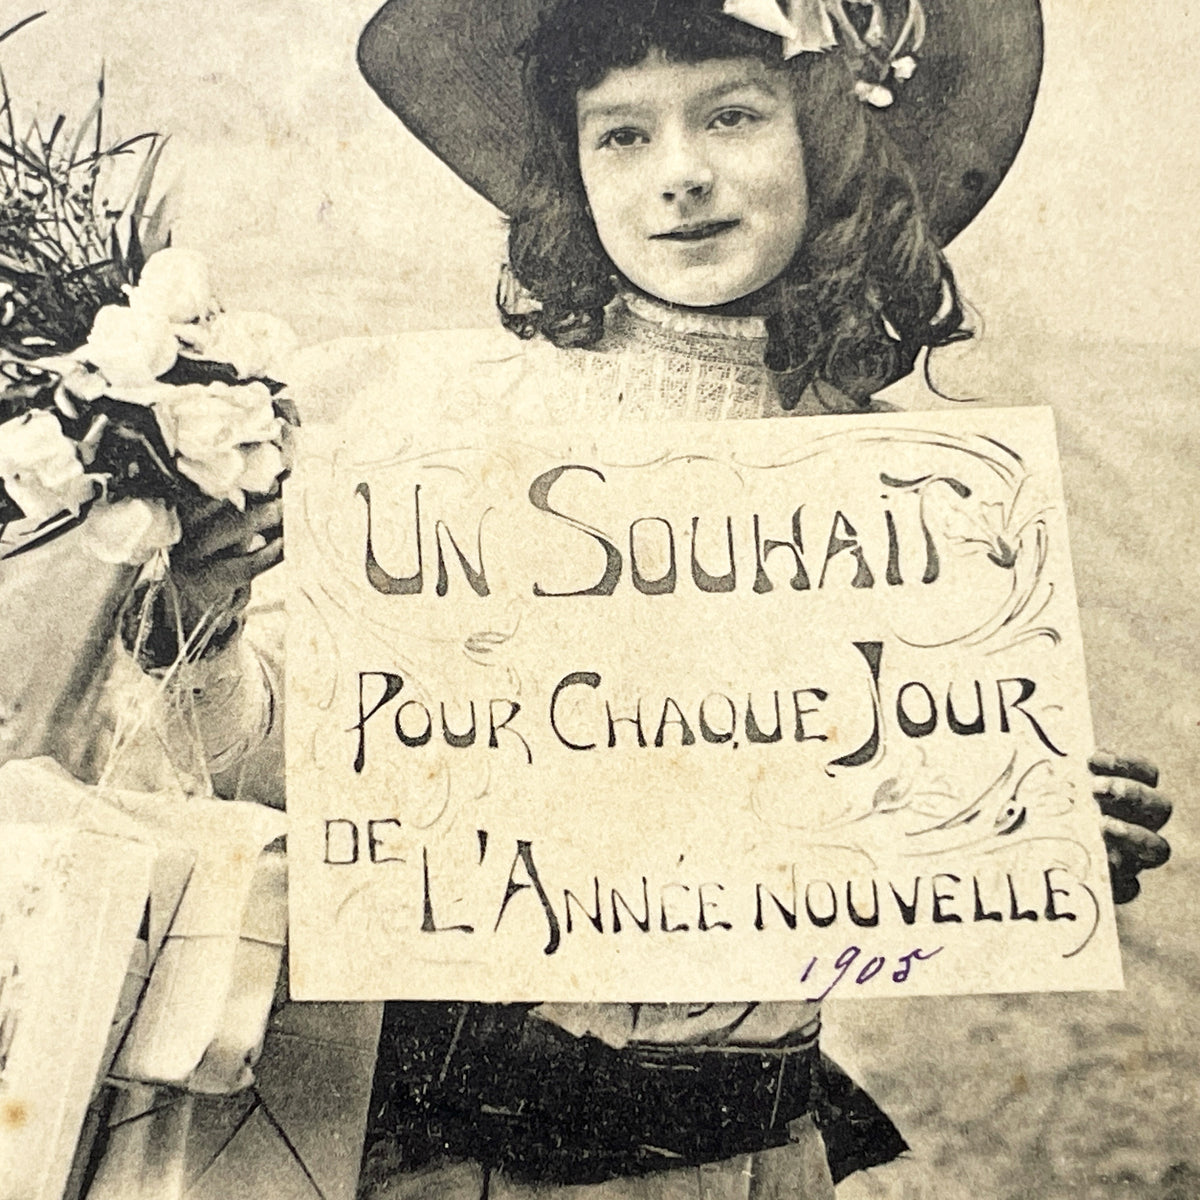 UN SOUHAIT
POUR CHAQUE JOUR
DE L'ANNÉE NOUVELLE
1905